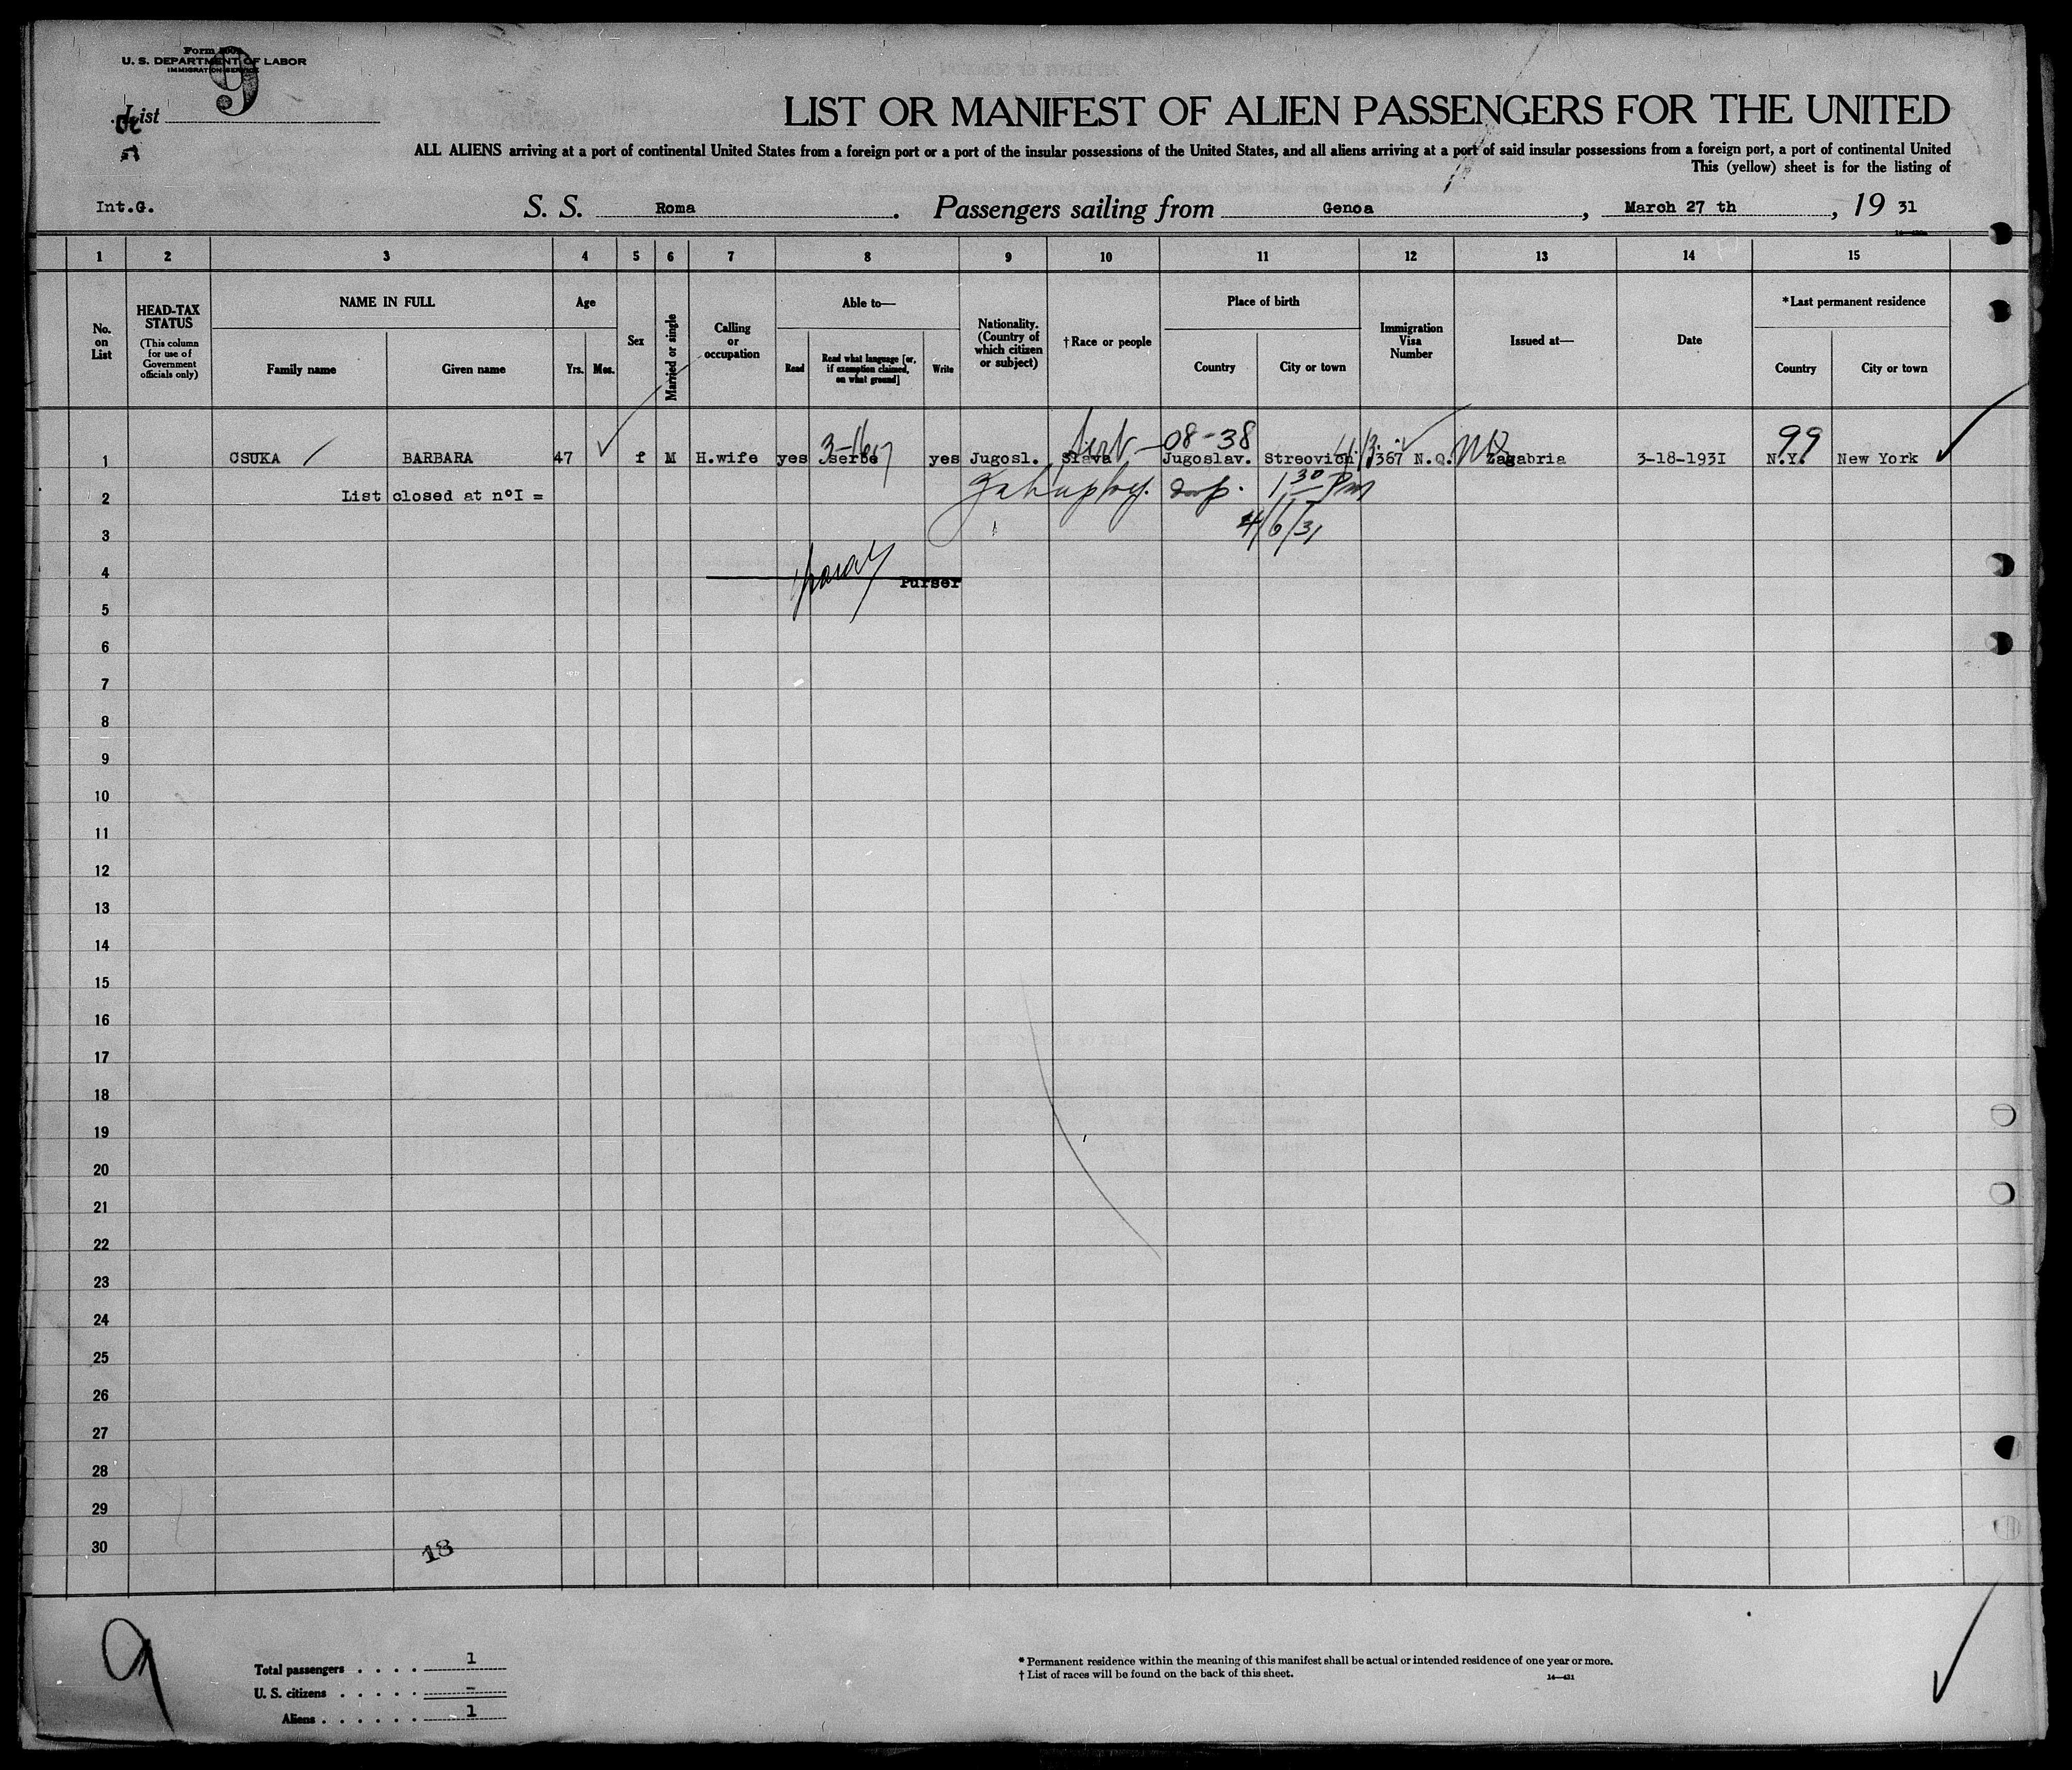 Form 500
U. S. DEPARTMENT OF LABOR
IMMIGRATION SERVICE
9
List
LIST OR MANIFEST OF ALIEN PASSENGERS FOR THE UNITED
ALL ALIENS arriving at a port of continental United States from a foreign port or a port of the insular possessions of the United States, and all aliens arriving at a port of said insular possessions from a foreign port, a port of continental United
This (yellow) sheet is for the listing of
Int.G. S. S. Roma . Passengers sailing from Genoa , March 27 th , 19 31
1 2 3 4 5 6 7 8 9 10 11 12 13 14 15
No. on List
HEAD-TAX STATUS (This column for use of Government officials only)
NAME IN FULL Family name Given name
Age Yrs. Mos.
Sex
Married or single
Calling or occupation
Able to— Read Read what language [or, if exemption claimed, on what ground] Write
Nationality. (Country of which citizen or subject)
† Race or people
Place of birth Country City or town
Immigration Visa Number
Issued at—
Date
* Last permanent residence Country City or town
3-1617 Serb 08-38 99
1 CSUKA BARBARA 47 f M H.wife yes Serbe yes Jugosl. Slava Jugoslav. Streovich 1367 N.Q. Zagabria 3-18-1931 N.Y. New York
2 List closed at n°I = 1 30 Pm
3 4/6/31
4 Purser
5
6
7
8
9
10
11
12
13
14
15
16
17
18
19
20
21
22
23
24
25
26
27
28
29
30
18
9
Total passengers . . . . 1
U. S. citizens . . . . . –
Aliens . . . . . . 1
* Permanent residence within the meaning of this manifest shall be actual or intended residence of one year or more.
† List of races will be found on the back of this sheet.
14—431